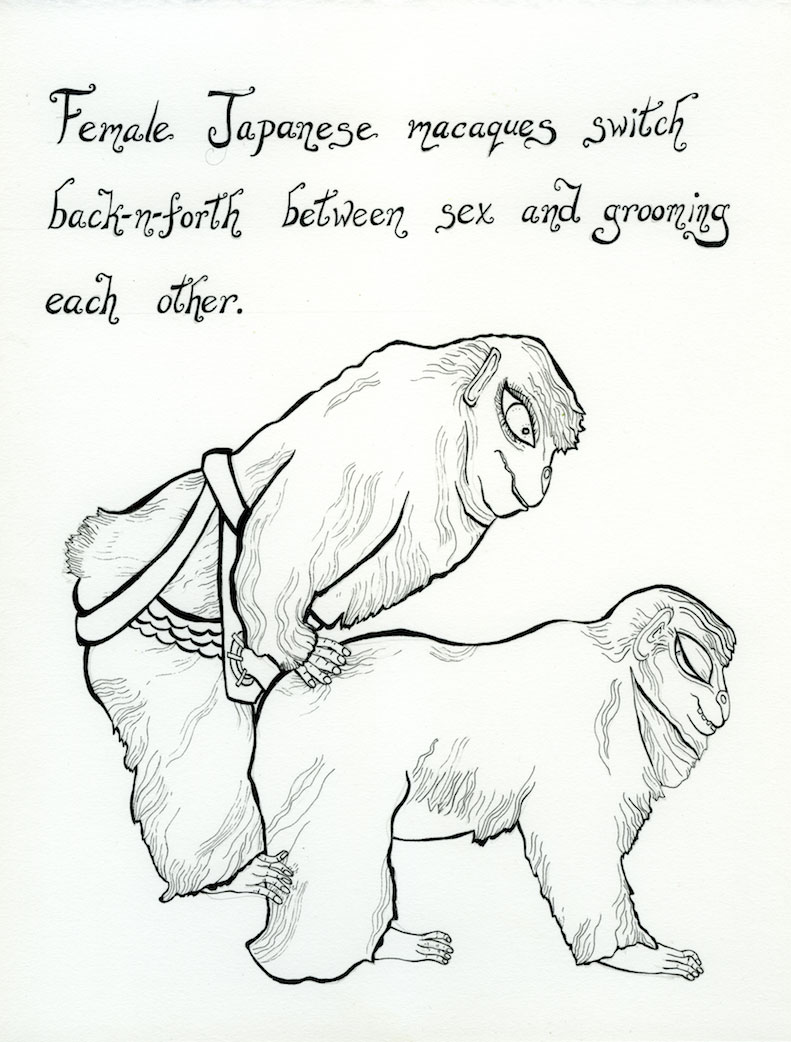 Female Japanese macaques switch
back-n-forth between sex and grooming
each other.